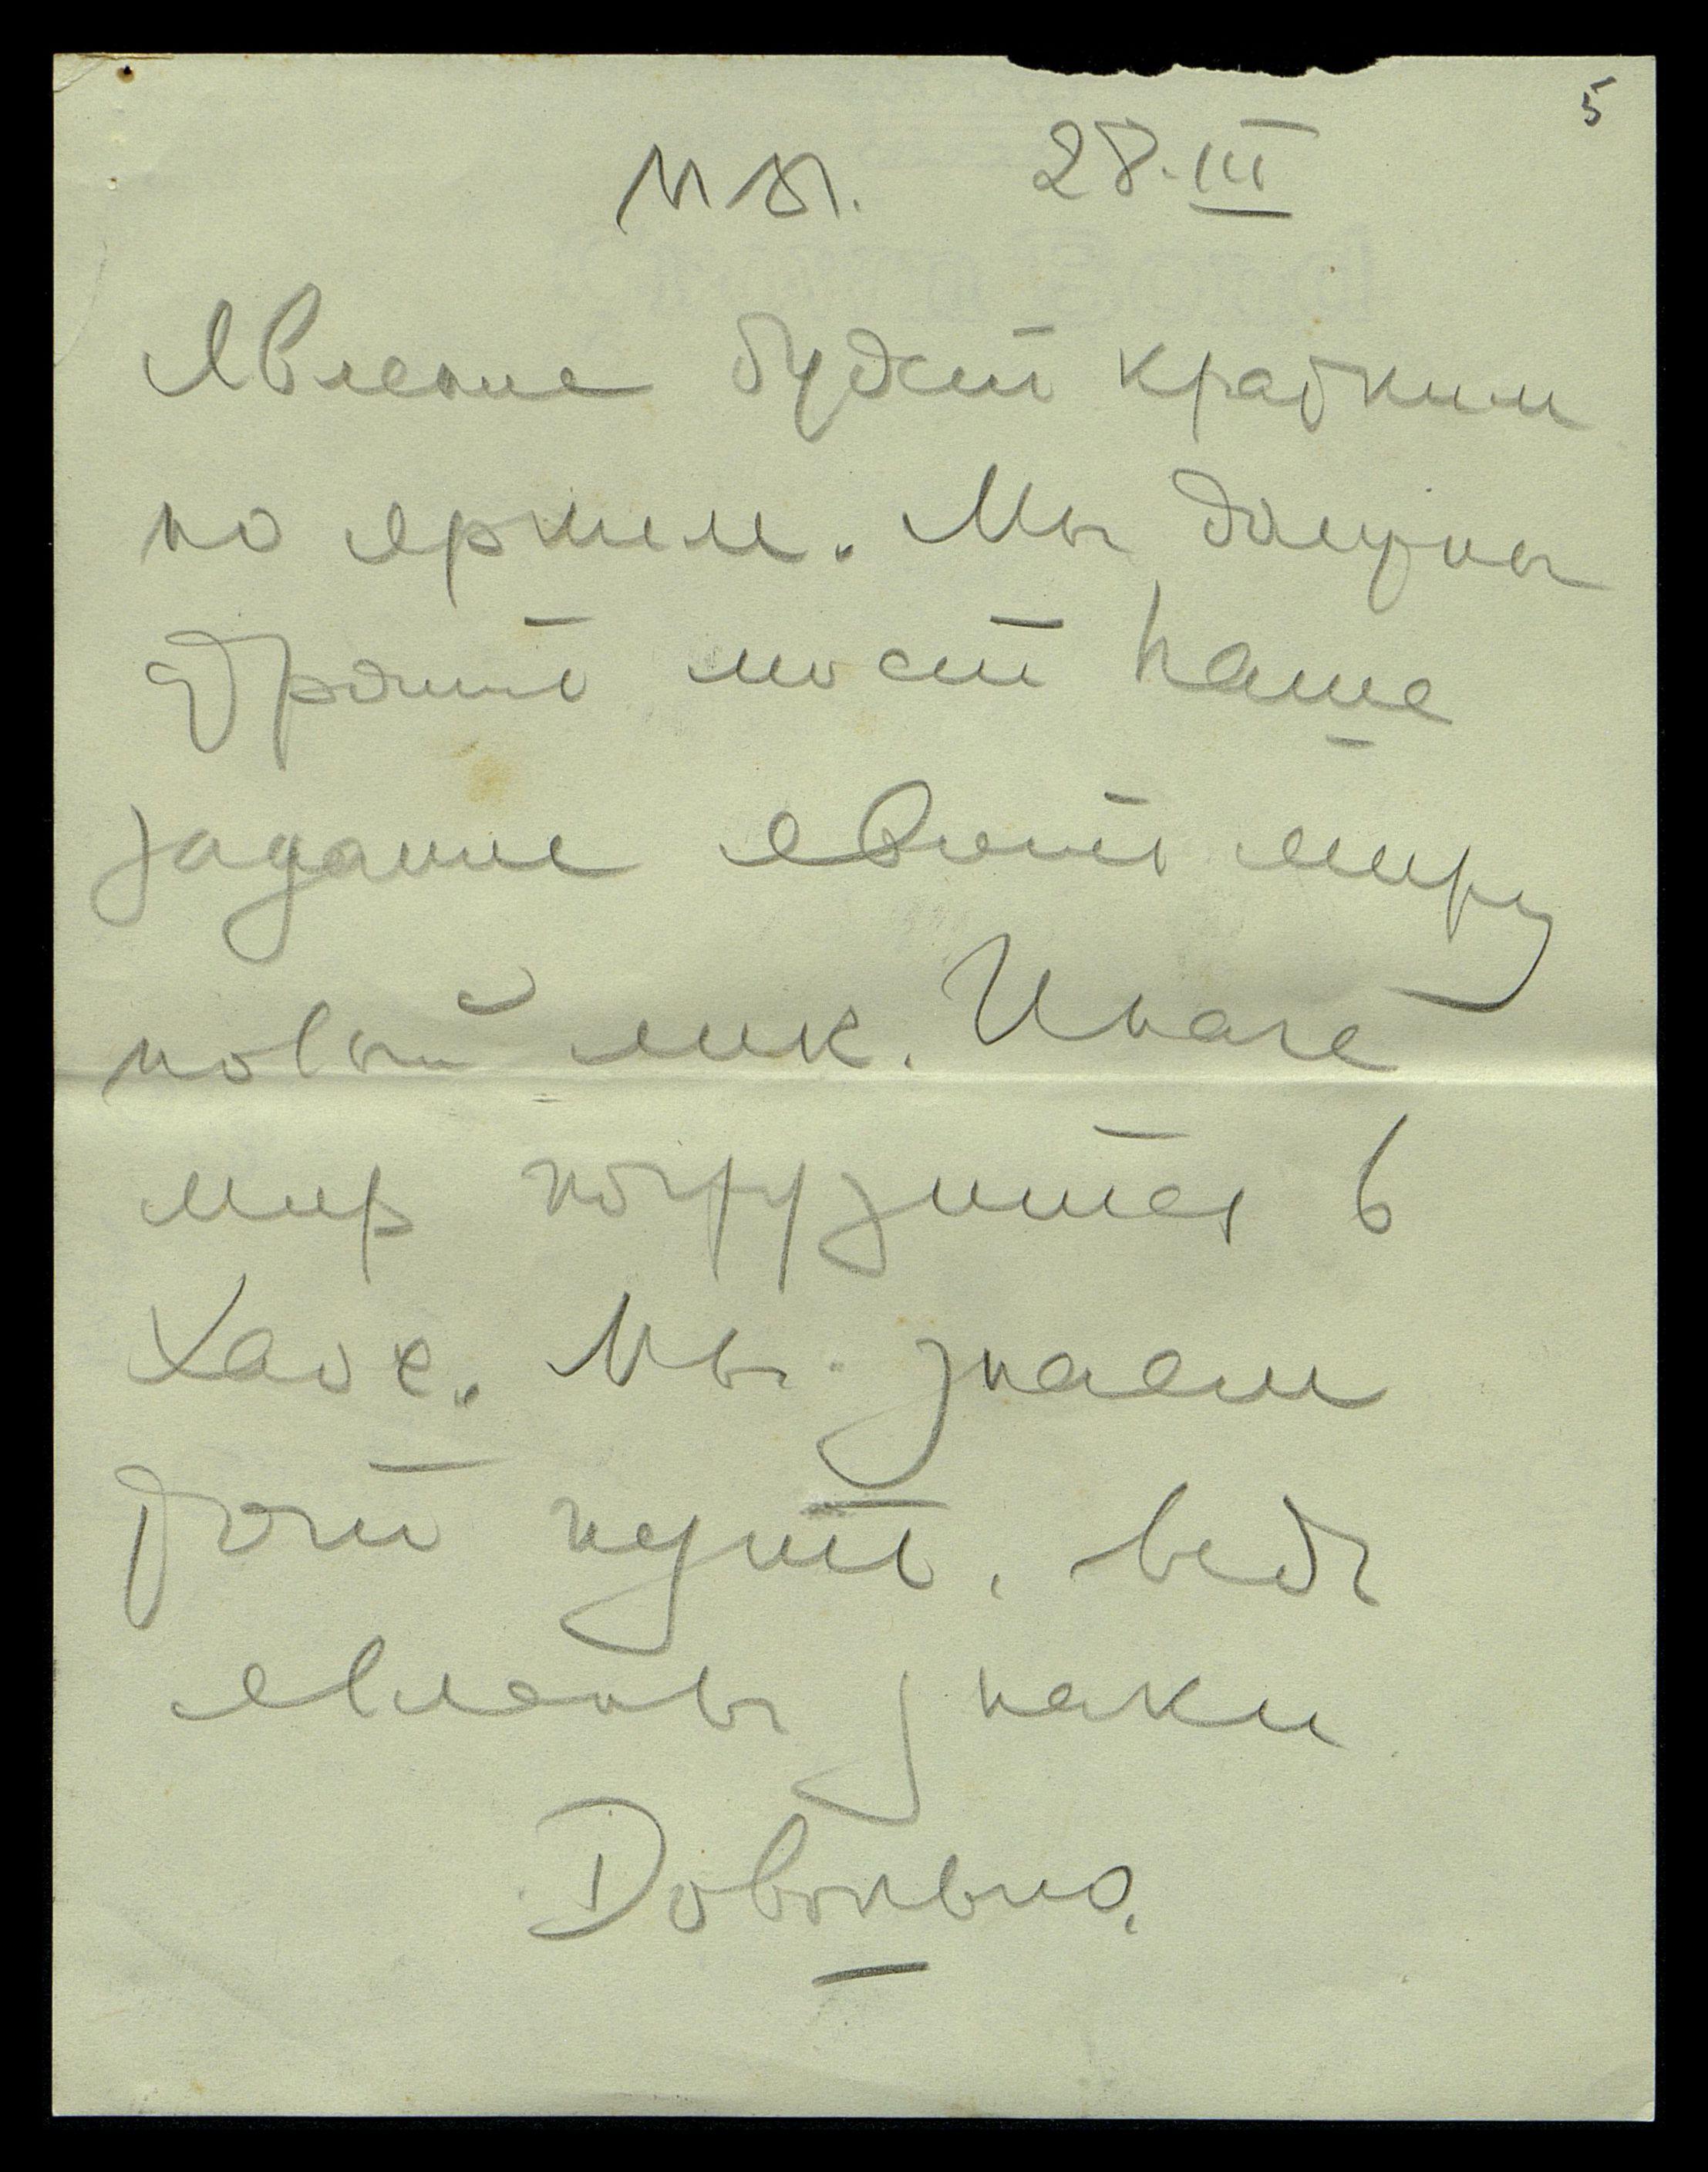 5
28.III
Явление будет кратким
но ярким. Мы должны
строить мост Наше
задание явить миру
новый лик. Иначе
мир погрузится в
Хаос. Мы знаем
этот путь, ведь
явлены знаки
Довольно.